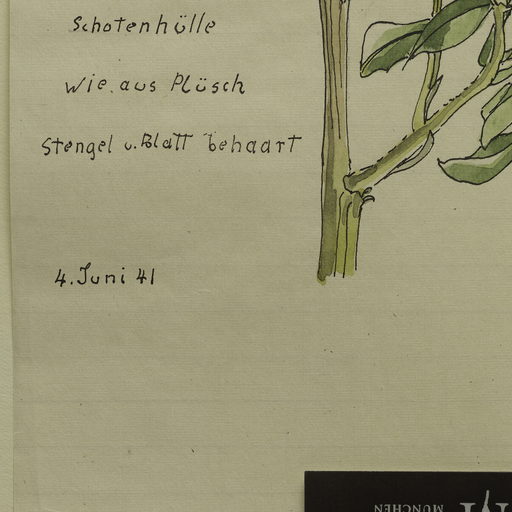 Schotenhülle
wie aus Plüsch
Stengel u. Blatt behaart
4. Juni 41
MÜNCHEN